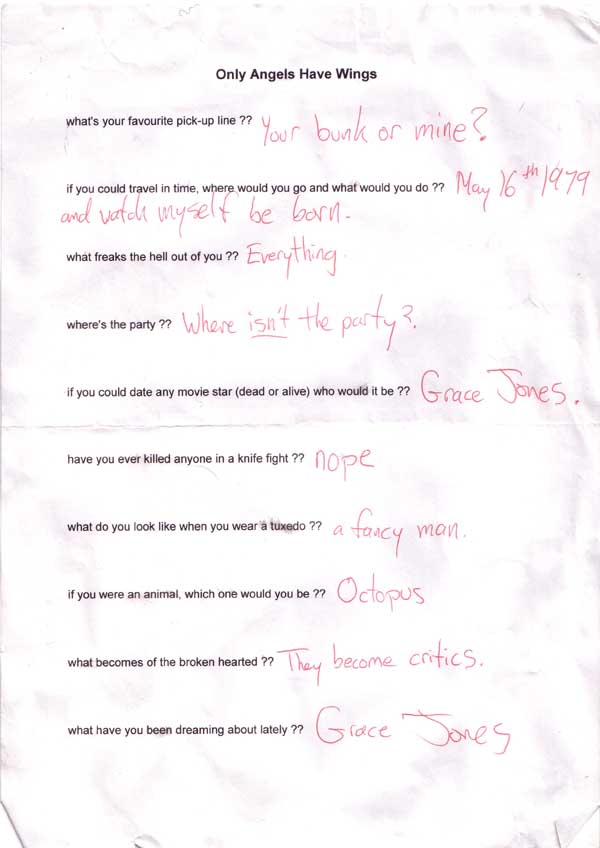 Only Angels Have Wings
what's your favourite pick-up line ?? Your bunk or mine?
if you could travel in time, where would you go and what would you do ?? May 16th 1979
and watch myself be born.
what freaks the hell out of you ?? Everything.
where's the party ?? Where isn't the party?.
if you could date any movie star (dead or alive) who would it be ?? Grace Jones.
have you ever killed anyone in a knife fight ?? nope
what do you look like when you wear a tuxedo ?? a fancy man.
if you were an animal, which one would you be ?? Octopus
what becomes of the broken hearted ?? They become critics.
what have you been dreaming about lately ?? Grace Jones